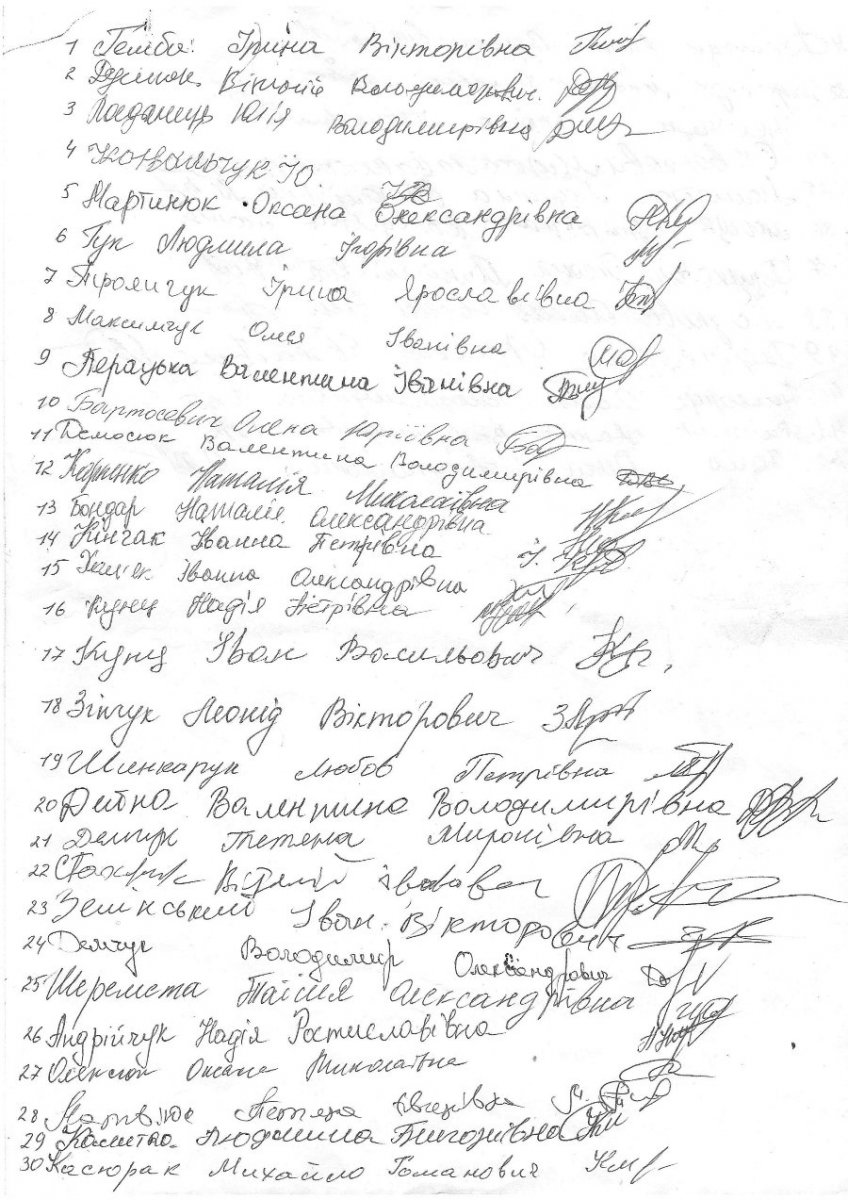 1 Гемба Ірина Вікторівна
2 Віталій Володимирович
3 Юлія Володимирівна
4 Ковальчук Ю
5 Мартинюк Оксана Олександрівна
6 Гук Людмила Ігорівна
7 Ірина Ярославівна
8 Максимчук Олеся Іванівна
9 Перацька Валентина Іванівна
10 Бартосевич Олена Юріївна
11 Демосюк Валентина Володимирівна
12 Наталія Миколаївна
13 Бондар Наталія Олександрівна
14 Кінгак Іванна Петрівна
15 Іванна Олександрівна
16 Кунец Надія Петрівна
17 Кунц Іван Васильович
18 Зінчук Леонід Вікторович
19 Шинкарук Любов Петрівна
20 Дейна Валентина Володимирівна
21 Демчук Тетяна Миронівна
22 Віталій
23 Зелінський Іван Вікторович
24 Демчук Володимир Олександрович
25 Шеремета Таїсія Олександрівна
26 Андрійчук Надія Ростиславівна
27 Олексюк Оксана Миколаївна
28 Тетяна Євгенівна
29 Людмила Григорівна
30 Касюрак Михайло Романович